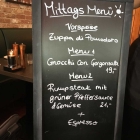 Mittags Menü
Vorspeise
Zuppa di Pomodoro
Menu 1
Gnocchi con Gorgonzola
19,-
Menu 2
Rumpsteak mit
grüner Pfeffersauce
Gemüse 21,-
+
Espresso